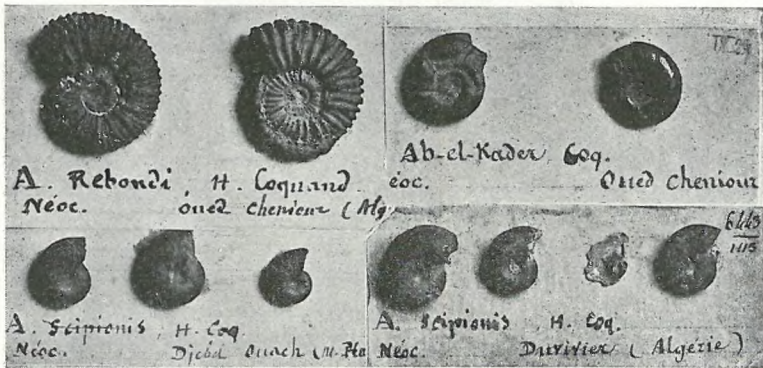 A. Rebondi, H. Coquand.
Néoc. Oued Cheniour (Alg.
Ab-el-Kader, Coq.
éoc. Oued Cheniour
A. Scipionis, H. Coq.
Néoc. Djebel Ouach
6445
1115
A. Scipionis, H. Coq.
Néoc. Duvivier (Algérie)